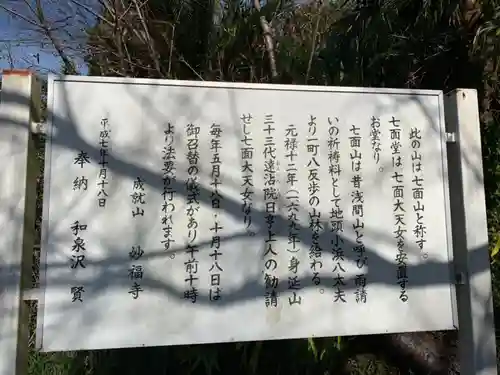 此の山は七面山と称す。
七面堂は七面大天女を安置する
お堂なり。
七面山は昔浅間山と呼び雨請
いの祈祷料として地頭小浜八太夫
より一町八反歩の山林を給わる。
元禄十二年(一六九九年)身延山
三十三代遠沾院日亨上人の勧請
せし七面大天女なり。
毎年五月十八日、十月十八日は
御召替の儀式があり午前十時
より法要が行われます。
平成七年十月十八日
成就山 妙福寺
奉納 和泉沢 賢